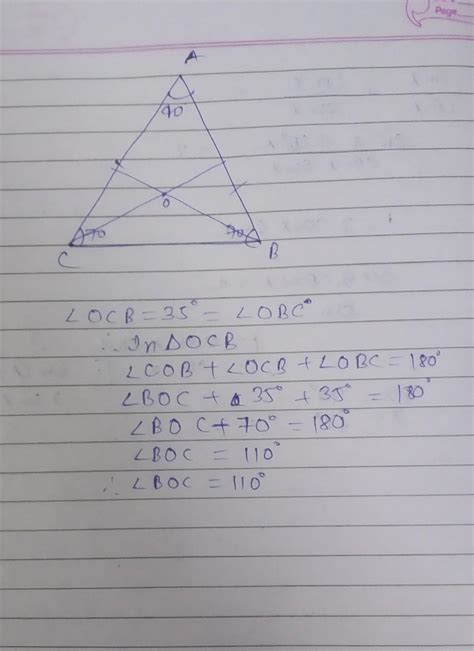 Page
A
40
O
70
70
C
B
∠OCB = 35° = ∠OBC°
∴ In ΔOCB
∠COB + ∠OCB + ∠OBC = 180°
∠BOC + 35° + 35° = 180°
∠BOC + 70° = 180°
∠BOC = 110°
∴ ∠BOC = 110°